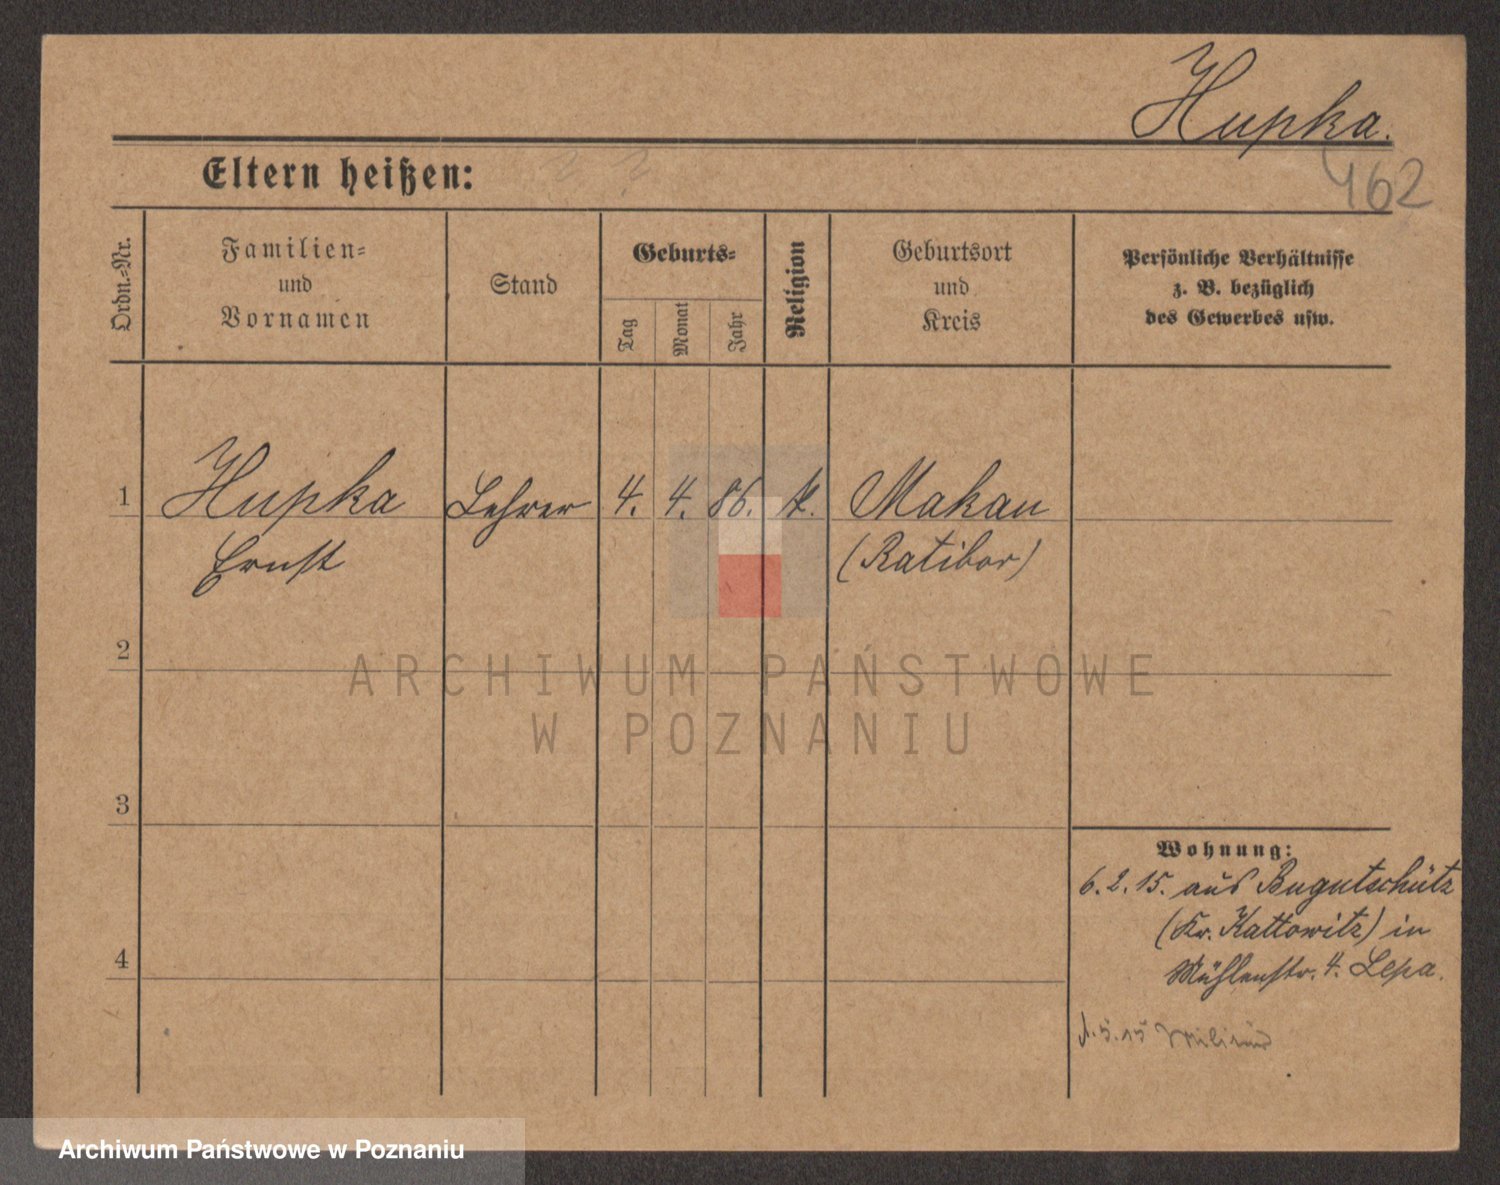 Hupka.
462
Eltern heißen:
Ordn.-Nr.
Familien-
und
Vornamen
Stand
Geburts-
Tag
Monat
Jahr
Religion
Geburtsort
und
Kreis
Persönliche Verhältnisse
z. B. bezüglich
des Gewerbes usw.
1 Hupka Lehrer 4. 4. 86. k. Makau
Ernst (Ratibor)
2
ARCHIWUM PAŃSTWOWE
W POZNANIU
3
Wohnung:
6.2.15. aus Bugutschütz
(Kr. Kattowitz) in
4
Mühlenstr. 4. Lepa.
5.15 Militär
Archiwum Państwowe w Poznaniu